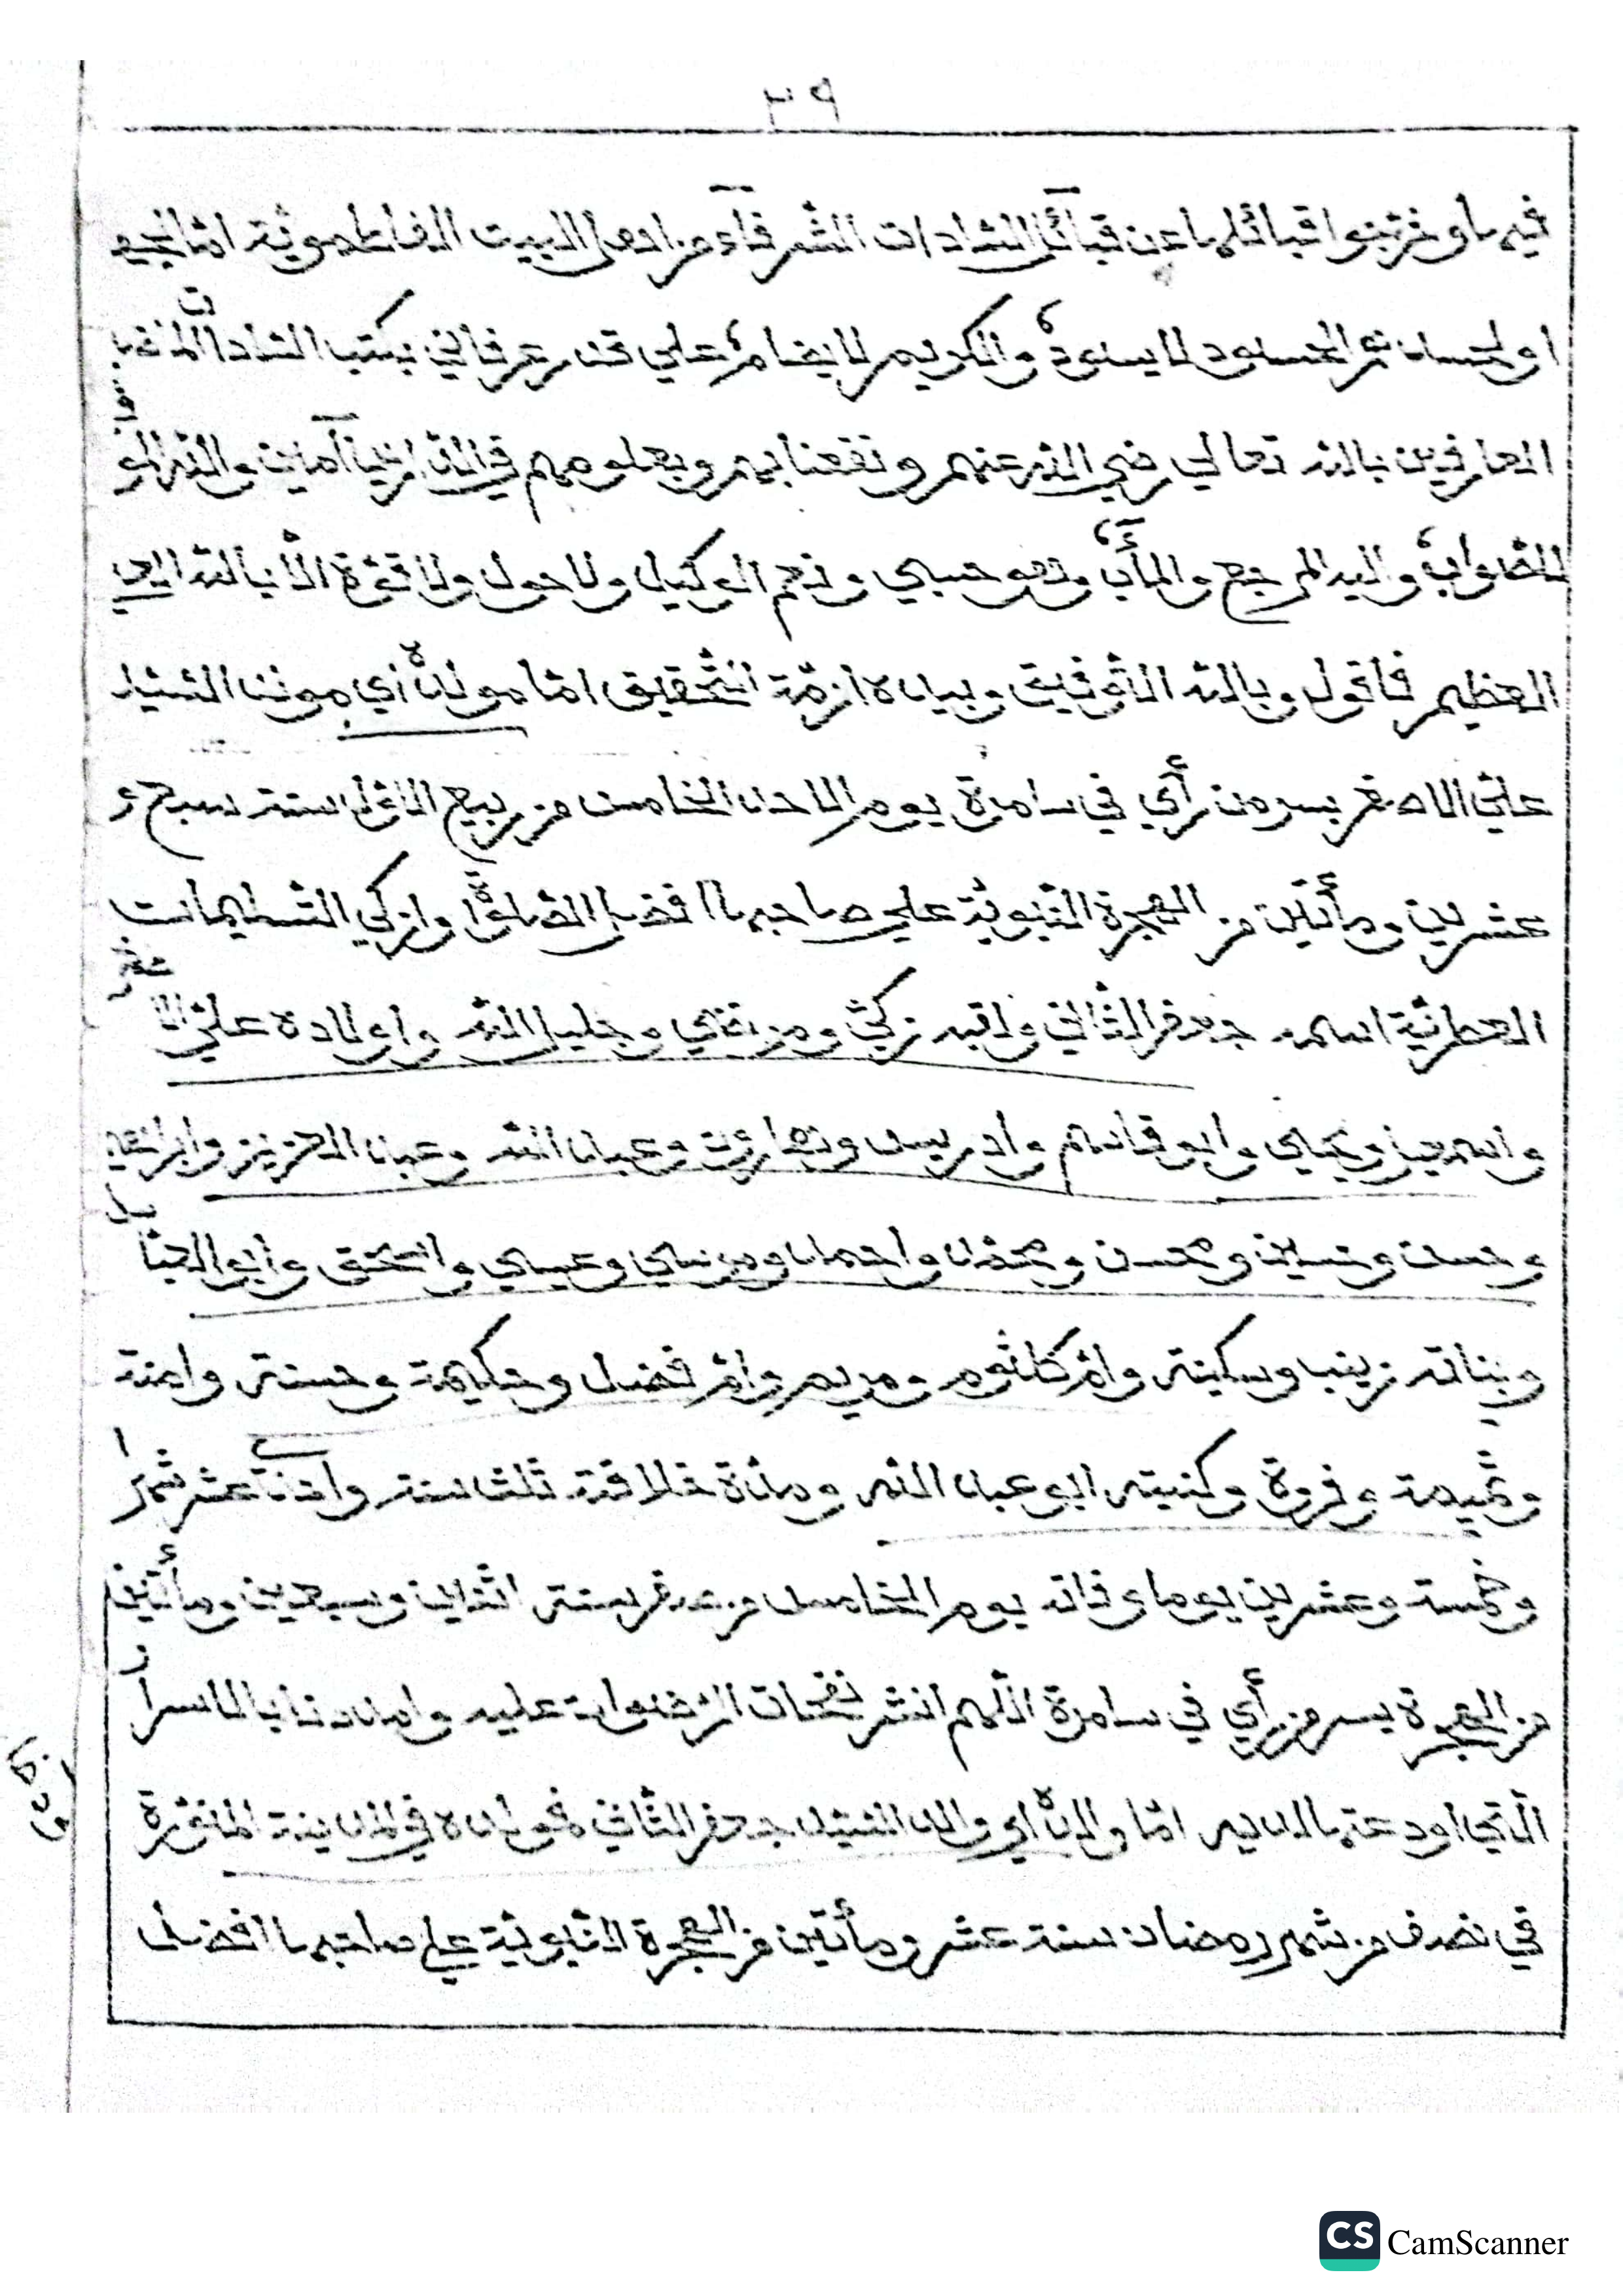 ٣٩
فيها وخرّجوا قبائلها عن قبآئل السّادات الشّرفآء من اهل البيت الفاطمويّة امّا لجهـ
او لحسد نعم الحسود لا يسود والكريم لا يضام علي قدر عرفاني بكتب السّادات
العارفين بالله تعالي رضي الله عنهم ونفعنا بهم وبعلومهم في الدّارين آمين والله الموفّق
للصّواب واليه المرجع والمأب وهو حسبي ونعم الوكيل ولا حول ولا قوّة الّا بالله العلي
العظيم فاقول وبالله التّوفيق وبيده ازمّة التّحقيق امّا مولده أي مولد السّيّد
عليّ الاصغر بسر من رأي في سامرة يوم الاحد الخامس من ربيع الاوّل سنة سبع و
عشرين ومأتين من الهجرة النّبويّة علي صاحبها افضل الصّلوة وازكي التّسليمات
العطريّة اسمه جعفر الثّاني ولقبه زكيّ ومرتضي وجليل الله واولاده عليّ الاصغر
واسمعيل ويحيي وابو قاسم وادريس وهارون وعبد الله وعبد العزيز وابراهيم
وحسن وحسين ومحسن ومحمّد واحمد وموسي وعيسي واسحق وابو العبّا
وبناته زينب وسكينة وامّ كلثوم ومريم وامّ فضل وحكيمة وحسنة وامنة
وفروة وكنيته ابو عبد الله ومدّة خلافته ثلث سنة واثني عشر شهرا
وخمسة وعشرين يوما وفاته يوم الخامس من صفر سنة اثنين وسبعين ومأتين
من الهجرة بسر من رأي في سامرة اللّهم انشر نفحات الرّضوان عليه وامددنا بالاسرار
الّتي اودعتها لديه امّا والده أي والد السّيّد جعفر الثّاني فمولده في المدينة المنوّرة
في نصف من شهر رمضان سنة عشر ومأتين من الهجرة النّبويّة علي صاحبها افضل
CS CamScanner